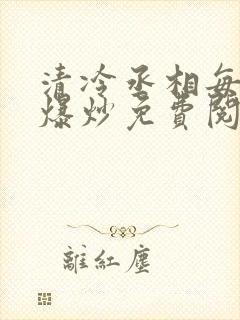 清冷丞相每
爆炒免費閱
離紅塵